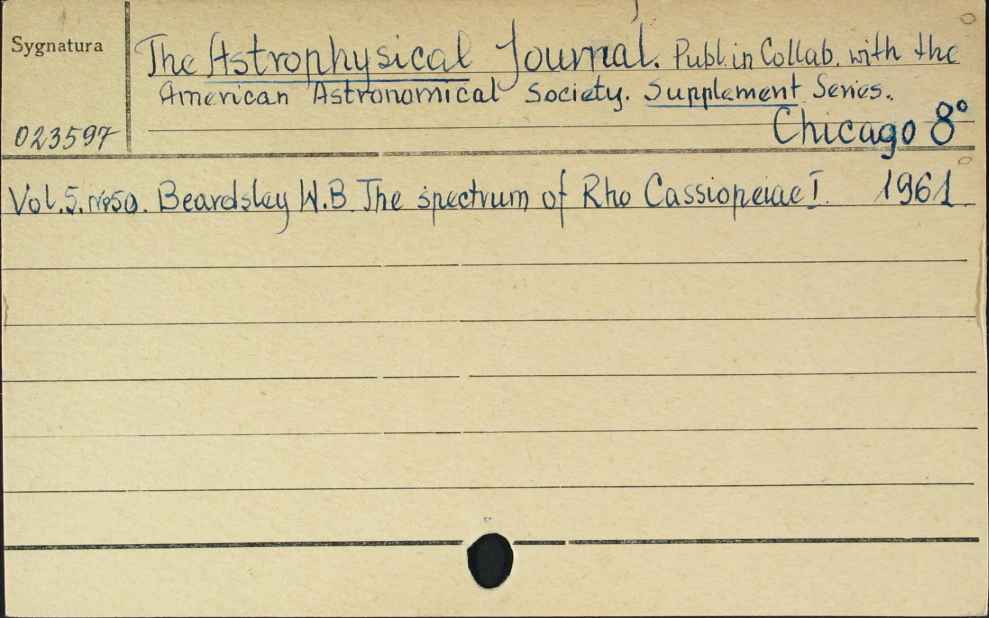 Sygnatura
The Astrophysical Journal. Publ. in Collab. with the
American Astronomical Society. Supplement Series.
023597
Chicago 8°
Vol. 5. nr 50. Beardsley W.B. The spectrum of Rho Cassiopeiae I. 1961